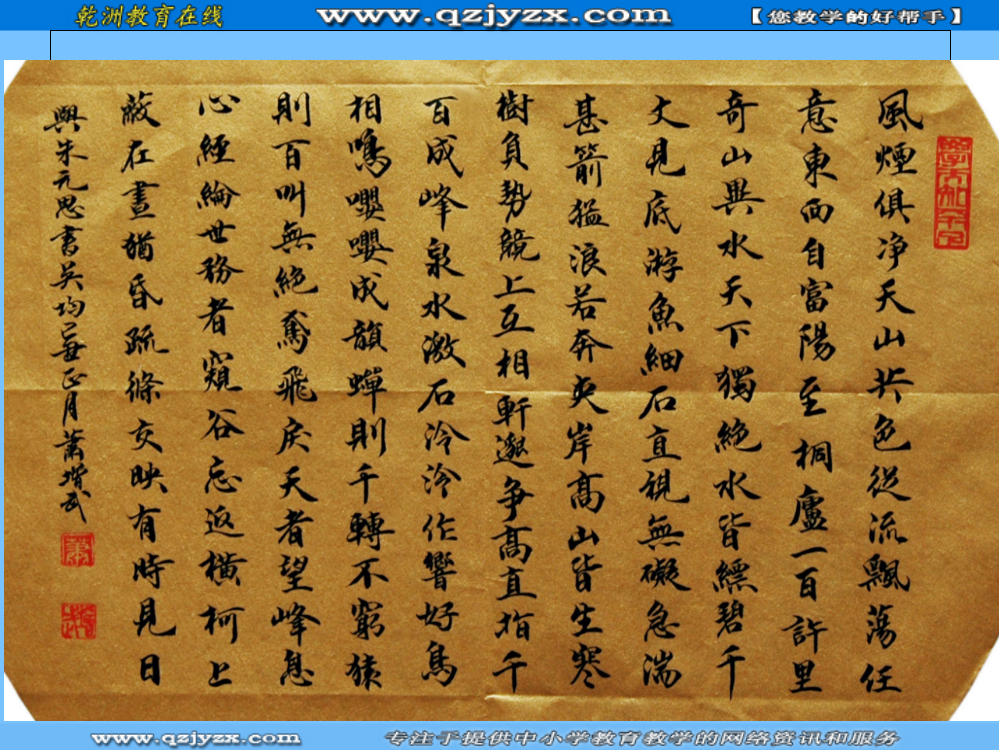 乾洲教育在线 www.qzjyzx.com 【您教学的好帮手】
風煙俱净天山共色從流飄蕩任
意東西自富陽至桐廬一百許里
奇山異水天下獨絕水皆縹碧千
丈見底游魚細石直視無礙急湍
甚箭猛浪若奔夾岸高山皆生寒
樹負勢競上互相軒邈爭高直指千
百成峰泉水激石泠泠作響好鳥
相鳴嚶嚶成韻蟬則千轉不窮猿
則百叫無絕鳶飛戾天者望峰息
心經綸世務者窺谷忘返橫柯上
蔽在晝猶昏疏條交映有時見日
與朱元思書吳均正月蕭
www.qzjyzx.com 专注于提供中小学教育教学的网络资讯和服务